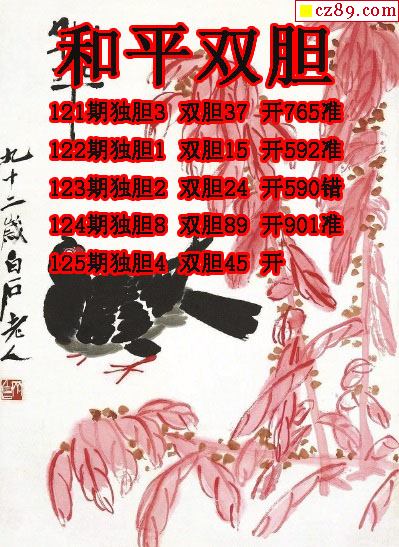 cz89.com
和平双胆
121期独胆3 双胆37 开765准
122期独胆1 双胆15 开592准
123期独胆2 双胆24 开590错
124期独胆8 双胆89 开901准
125期独胆4 双胆45 开
九十二岁白石老人